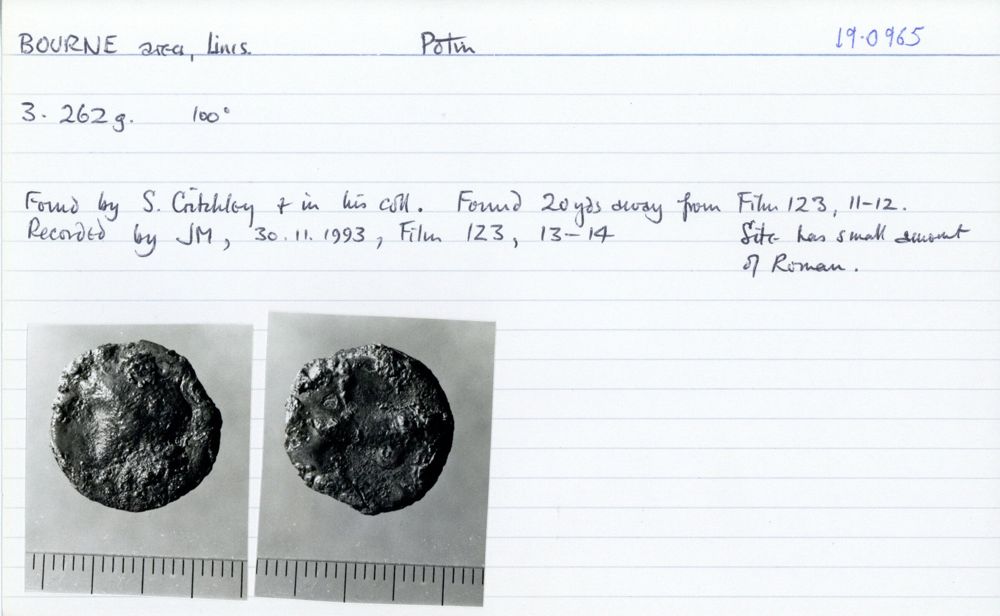 BOURNE area, Lincs. Potin 19.0965
3.262g. 100°
Found by S. Critchley & in his coll. Found 20yds away from Film 123, 11-12.
Recorded by JM, 30.11.1993, Film 123, 13-14 Site has small amount
of Roman.